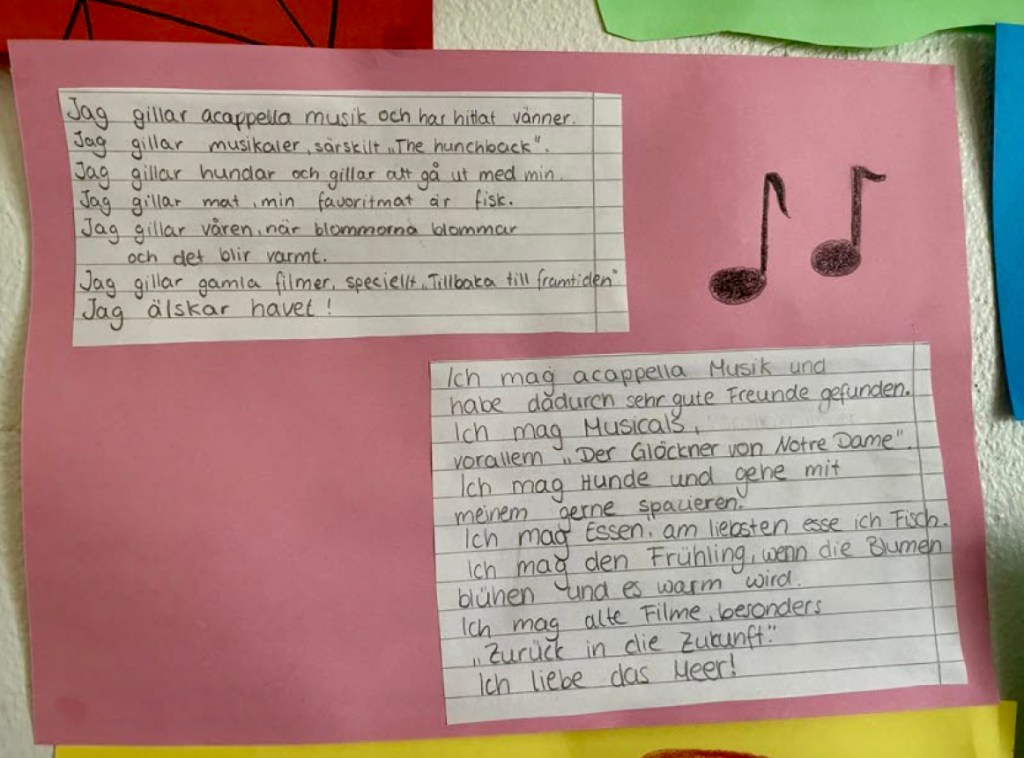 Jag gillar acappella musik och har hittat vänner.
Jag gillar musikaler, särskilt „The hunchback".
Jag gillar hundar och gillar att gå ut med min.
Jag gillar mat, min favoritmat är fisk.
Jag gillar våren, när blommorna blommar
och det blir varmt.
Jag gillar gamla filmer, speciellt „Tillbaka till framtiden"
Jag älskar havet!
Ich mag acappella Musik und
habe dadurch sehr gute Freunde gefunden.
Ich mag Musicals,
vorallem „Der Glöckner von Notre Dame".
Ich mag Hunde und gehe mit
meinem gerne spazieren.
Ich mag Essen, am liebsten esse ich Fisch.
Ich mag den Frühling, wenn die Blumen
blühen und es warm wird.
Ich mag alte Filme, besonders
„Zurück in die Zukunft".
Ich liebe das Meer!